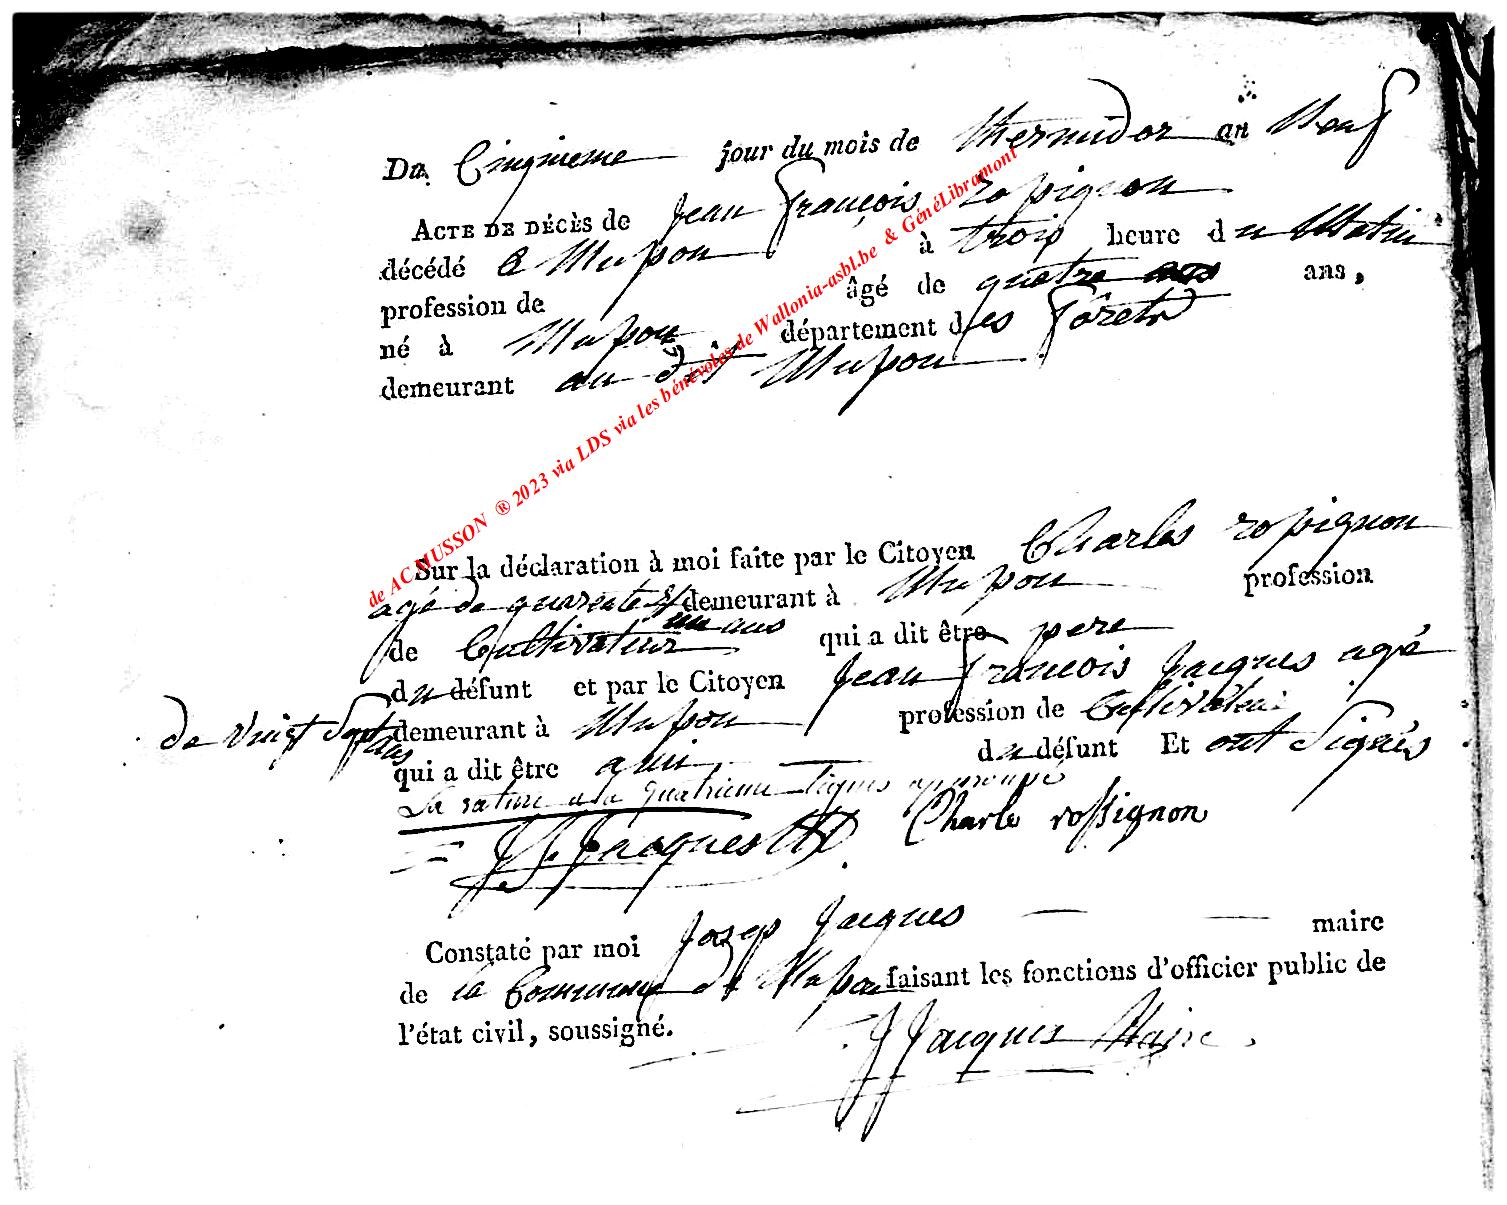 Du Cinqnieme jour du mois de thermidor an Neuf
ACTE DE DÉCÈS de Jean françois rossignon
décédé a Musson à trois heure du Matin
profession de âgé de quatre ans ans,
né à Musson département des forets
demeurant au dit Musson
Sur la déclaration à moi faite par le Citoyen Charles rossignon
agé de quarante et demeurant à Musson profession
un ans
de Cultivateur qui a dit être pere
du défunt et par le Citoyen Jean francois Jacques agé
de vingt Sept demeurant à Musson profession de Cultivateur
ans
qui a dit être ami du défunt Et ont Signés
La rature a la quatrieme lignes approuvé
J f Jacques Charle rossignon
Constaté par moi Josep Jacques maire
de la Commune de Musson faisant les fonctions d'officier public de
l'état civil, soussigné.
J Jacques Maire
de AC MUSSON ® 2023 via LDS via les bénévoles de Wallonia-asbl.be & GénéLibramont